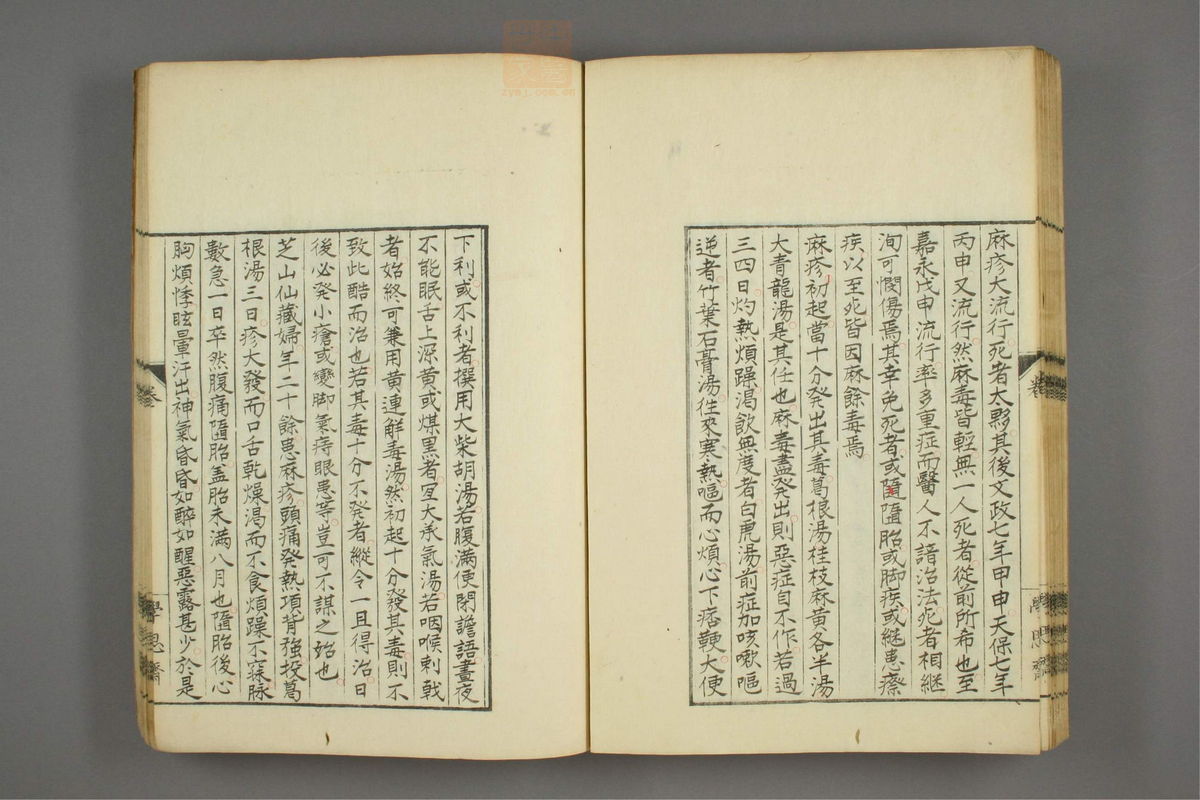 麻疹大流行死者太夥其後文政七年甲申天保七年
丙申又流行然麻毒皆輕無一人死者從前所希也至
嘉永戊申流行率多重症而醫人不諳治法死者相継
洵可憫傷焉其幸免死者或隨墮胎或脚疾或継患瘵
疾以至死皆因麻餘毒焉
麻疹初起當十分発出其毒葛根湯桂枝麻黄各半湯
大青龍湯是其任也麻毒盡発出則惡症自不作若過
三四日灼熱煩躁渴飲無度者白虎湯前症加咳嗽嘔
逆者竹葉石膏湯徃來寒熱嘔而心煩心下痞鞕大便
下利或不利者撰用大柴胡湯若腹満便閉譫語晝夜
不能眠舌上深黄或煤黒者冝大承氣湯若咽喉刺戟
者始終可兼用黄連解毒湯然初起十分發其毒則不
致此酷而治也若其毒十分不発者縱令一旦得治日
後必発小瘡或變脚氣痔眼患等豈可不謀之始也
芝山仙藏婦年二十餘患麻疹頭痛発熱項背強投葛
根湯三日疹大發而口舌乾燥渴而不食煩躁不寐脉
數急一日卒然腹痛墮胎盖胎未満八月也墮胎後心
胸煩悸眩暈汗出神氣昏昏如醉如醒惡露甚少於是
卷
學思齋